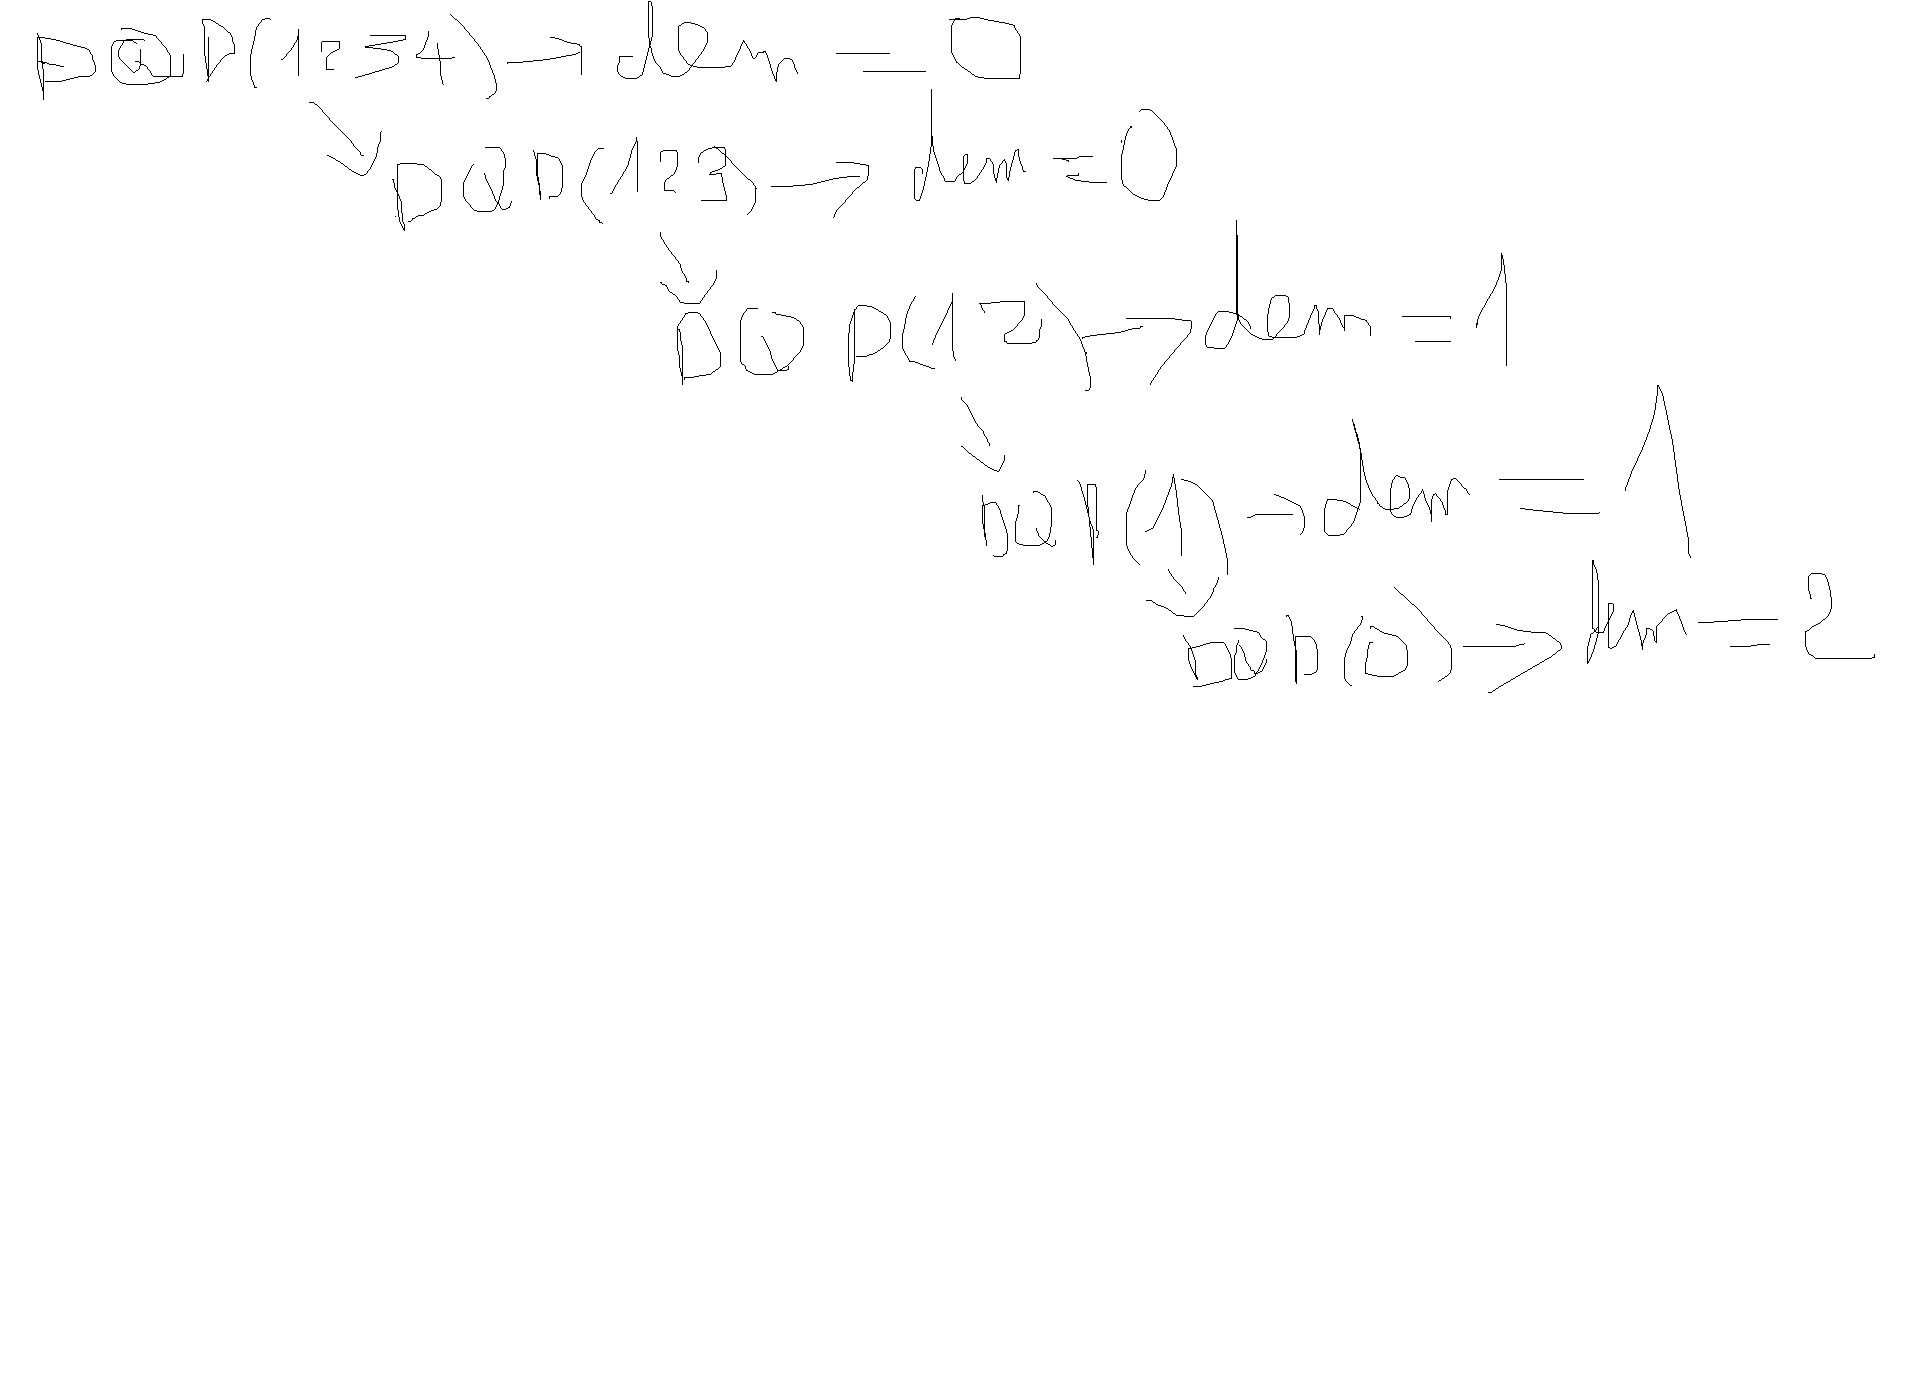 DQD(1234) → dem = 0
DQD(123) → dem = 0
DQD(12) → dem = 1
DQD(1) → dem = 1
DQD(0) → dem = 2